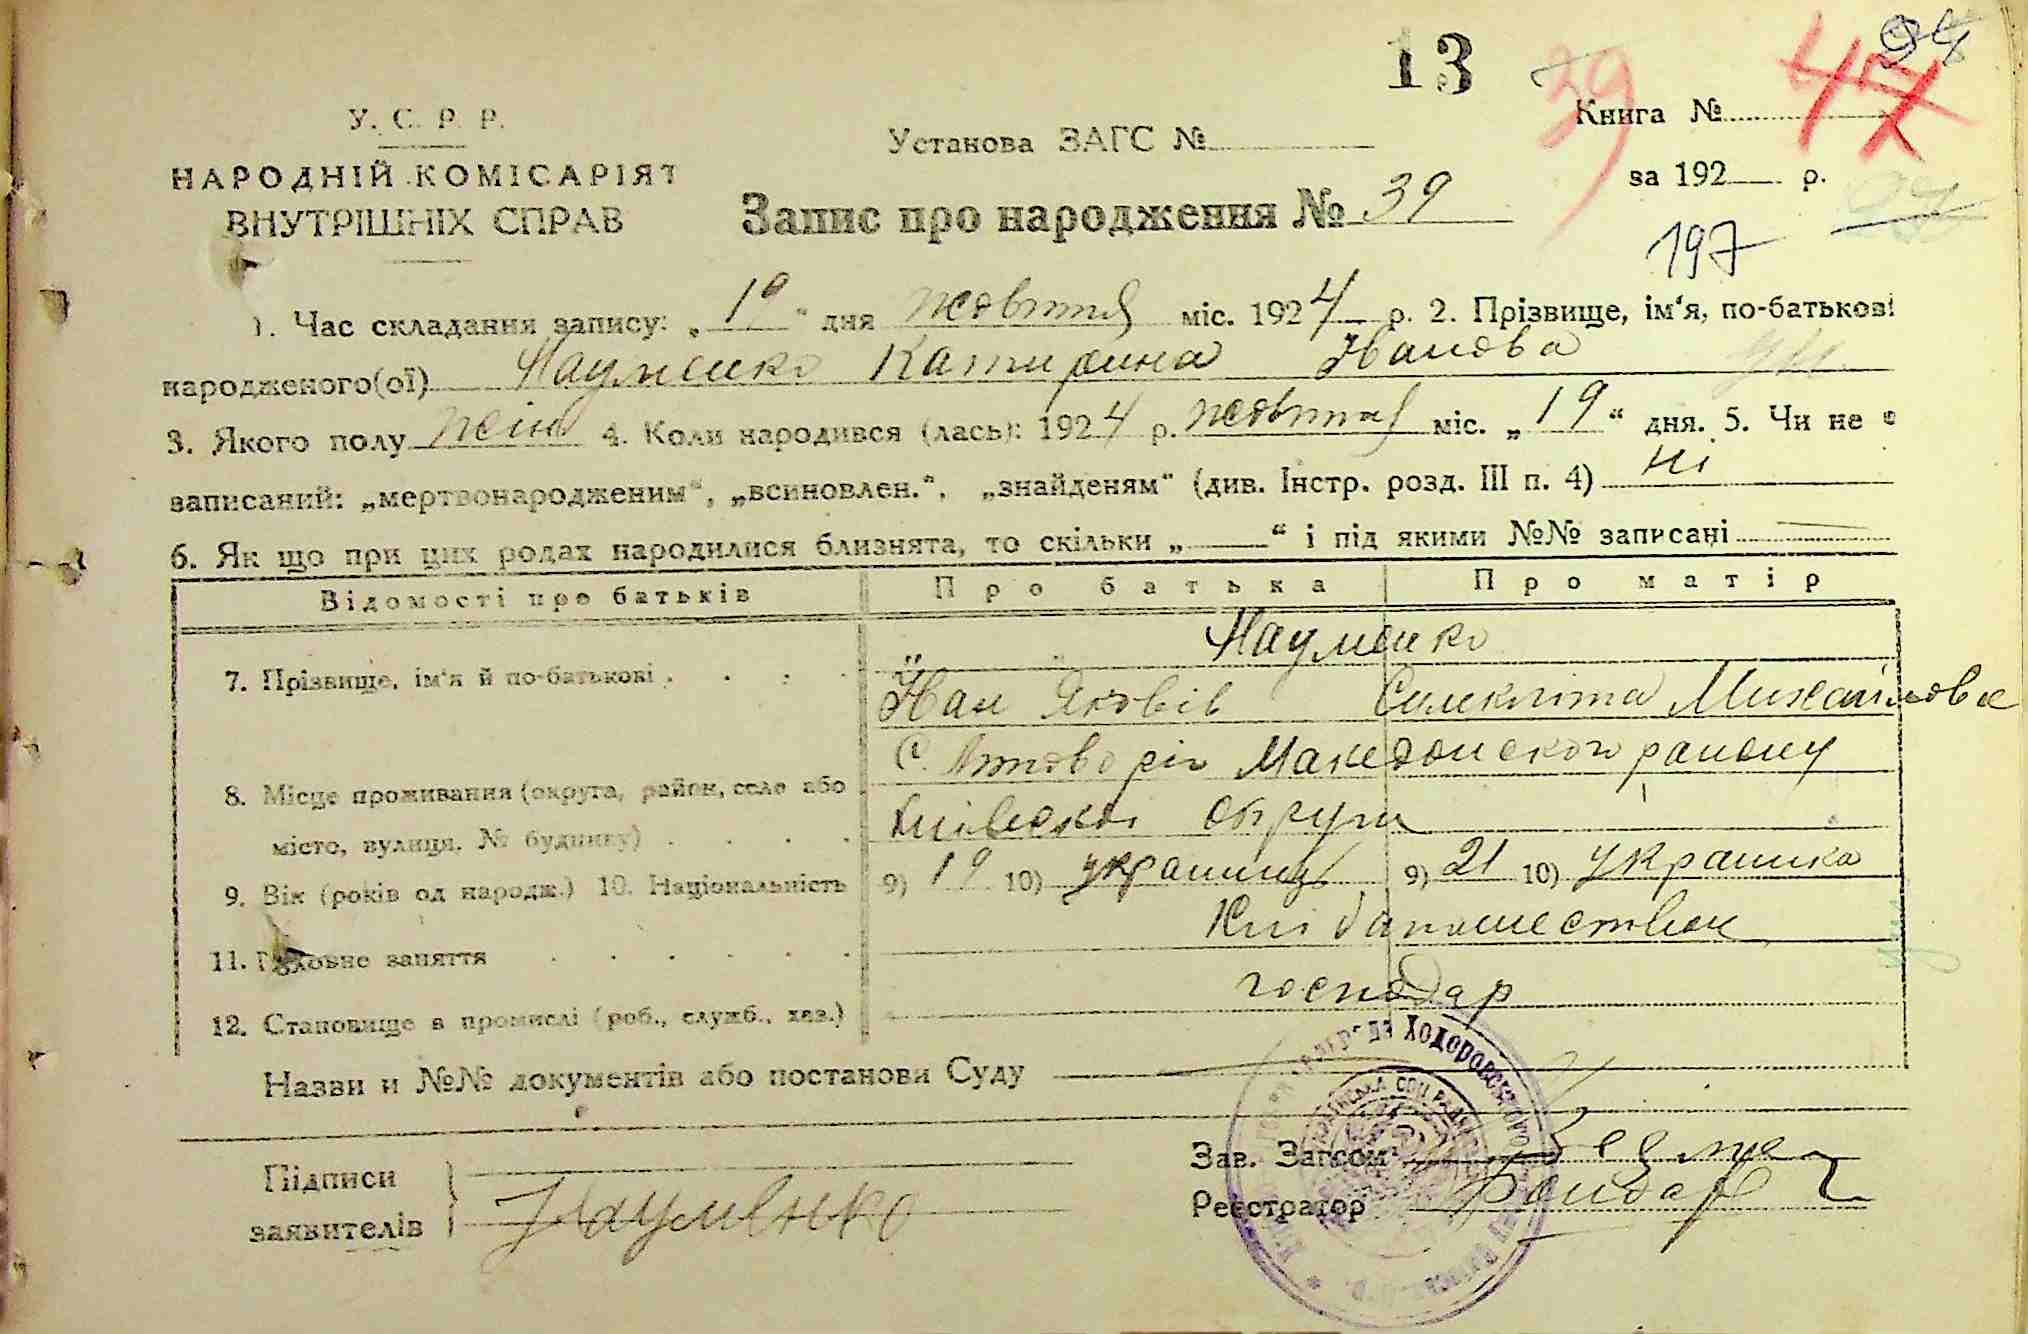 13
39
47
94
У. С. Р. Р.
НАРОДНІЙ КОМІСАРІЯТ
ВНУТРІШНІХ СПРАВ
Установа ЗАГС №
Книга №
за 192 р.
Запис про народження № 39
197
1. Час складання запису: „19" дня жовтня міс. 1924 р. 2. Прізвище, ім'я, по-батькові
народженого(ої) Науменко Катирина Іванова
3. Якого полу жін 4. Коли народився (лась): 1924 р. жовтня міс. „19" дня. 5. Чи не є
записаний: „мертвонародженим", „всиновлен.", „знайденям" (див. Інстр. розд. III п. 4) ні
6. Як що при цих родах народилися близнята, то скільки „ " і під якими №№ записані
Відомості про батьків Про батька Про матір
Науменко
7. Прізвище, ім'я й по-батькові Іван Яковів Михайлова
8. Місце проживання (округа, район, село або С. Македонского району
місто, вулиця, № будинку) округи
9. Вік (років од народж.) 10. Національність 9) 19 10) украинць 9) 21 10) украинка
11. Головне заняття
12. Становище в промислі (роб., служб., хаз.) господар
Назви и №№ документів або постанови Суду
Підписи
заявителів Науменко
Зав. Загсом
Реєстратор Бондар
Ходоровского